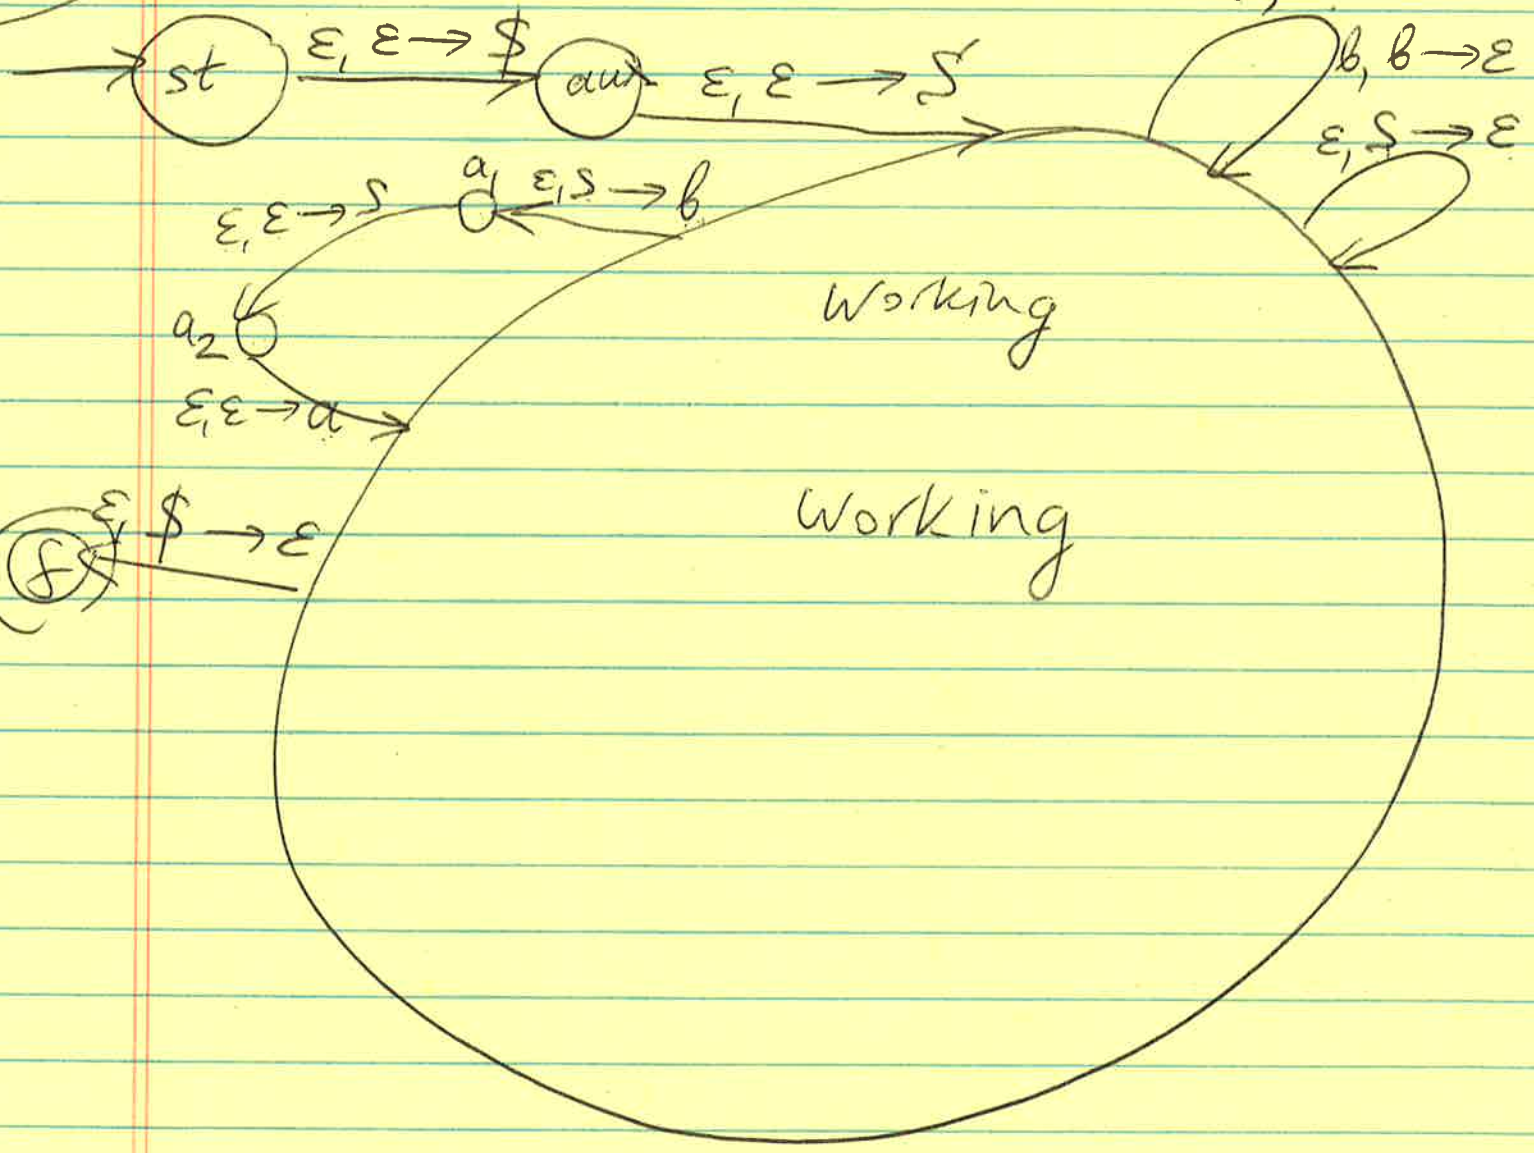 st
ε, ε → $
aux
ε, ε → S
b, b → ε
ε, S → ε
a₁
ε, S → b
ε, ε → S
a₂
ε, ε → a
working
working
ε, $ → ε
f